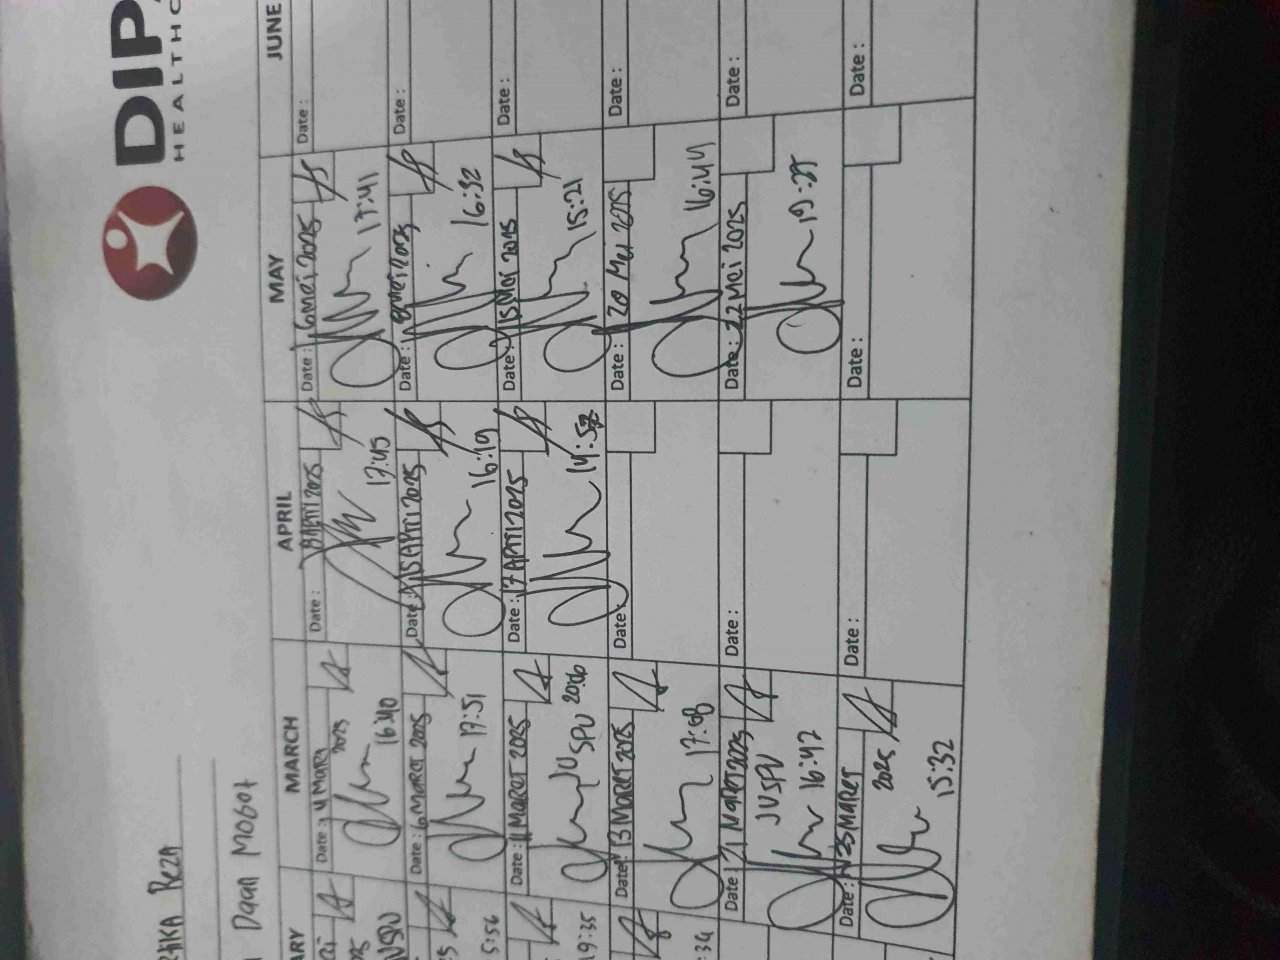 HEALTHC
REZA
Daan Mogot
MARCH
APRIL
MAY
JUNE
Date : 4 Maret
2025
16:40
Date : 8 April 2025
17:45
Date : 6 Mei 2025
17:41
Date :
Date : 6 Maret 2025
17:51
Date : 15 April 2025
16:19
Date : 8 Mei 2025
16:32
Date :
5:56
Date : 11 MARET 2025
JUSPU 20:06
Date : 17 April 2025
14:52
Date : 15 Mei 2025
15:21
Date :
19:35
Date : 13 MARET 2025
17:08
Date :
Date : 20 Mei 2025
16:44
Date :
:34
Date : 21 Maret 2025
JUSPU
16:42
Date :
Date : 22 Mei 2025
Date :
Date : 25 MARET
2025
15:32
Date :
Date :
Date :